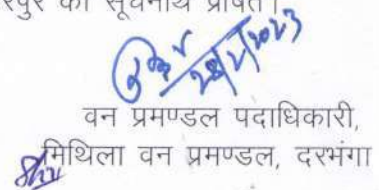 को सूचनार्थ प्रेषित।
28/2/2023
वन प्रमण्डल पदाधिकारी,
मिथिला वन प्रमण्डल, दरभंगा